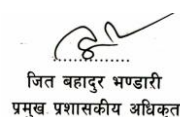 जित बहादुर भण्डारी
प्रमुख प्रशासकीय अधिकृत